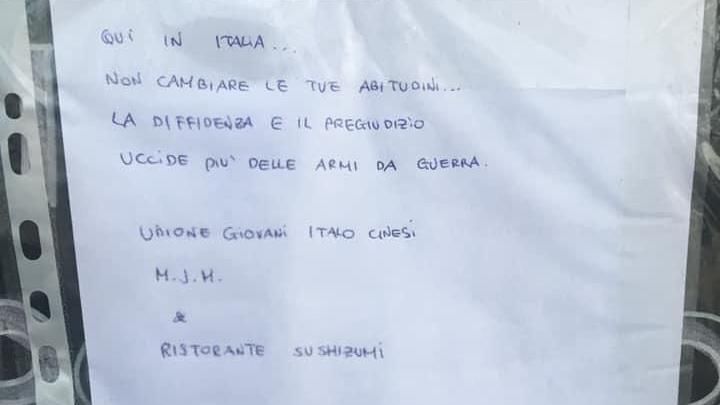 QUI IN ITALIA...
NON CAMBIARE LE TUE ABITUDINI...
LA DIFFIDENZA E IL PREGIUDIZIO
UCCIDE PIU' DELLE ARMI DA GUERRA.
UNIONE GIOVANI ITALO CINESI
M.J.H.
&
RISTORANTE SUSHIZUMI